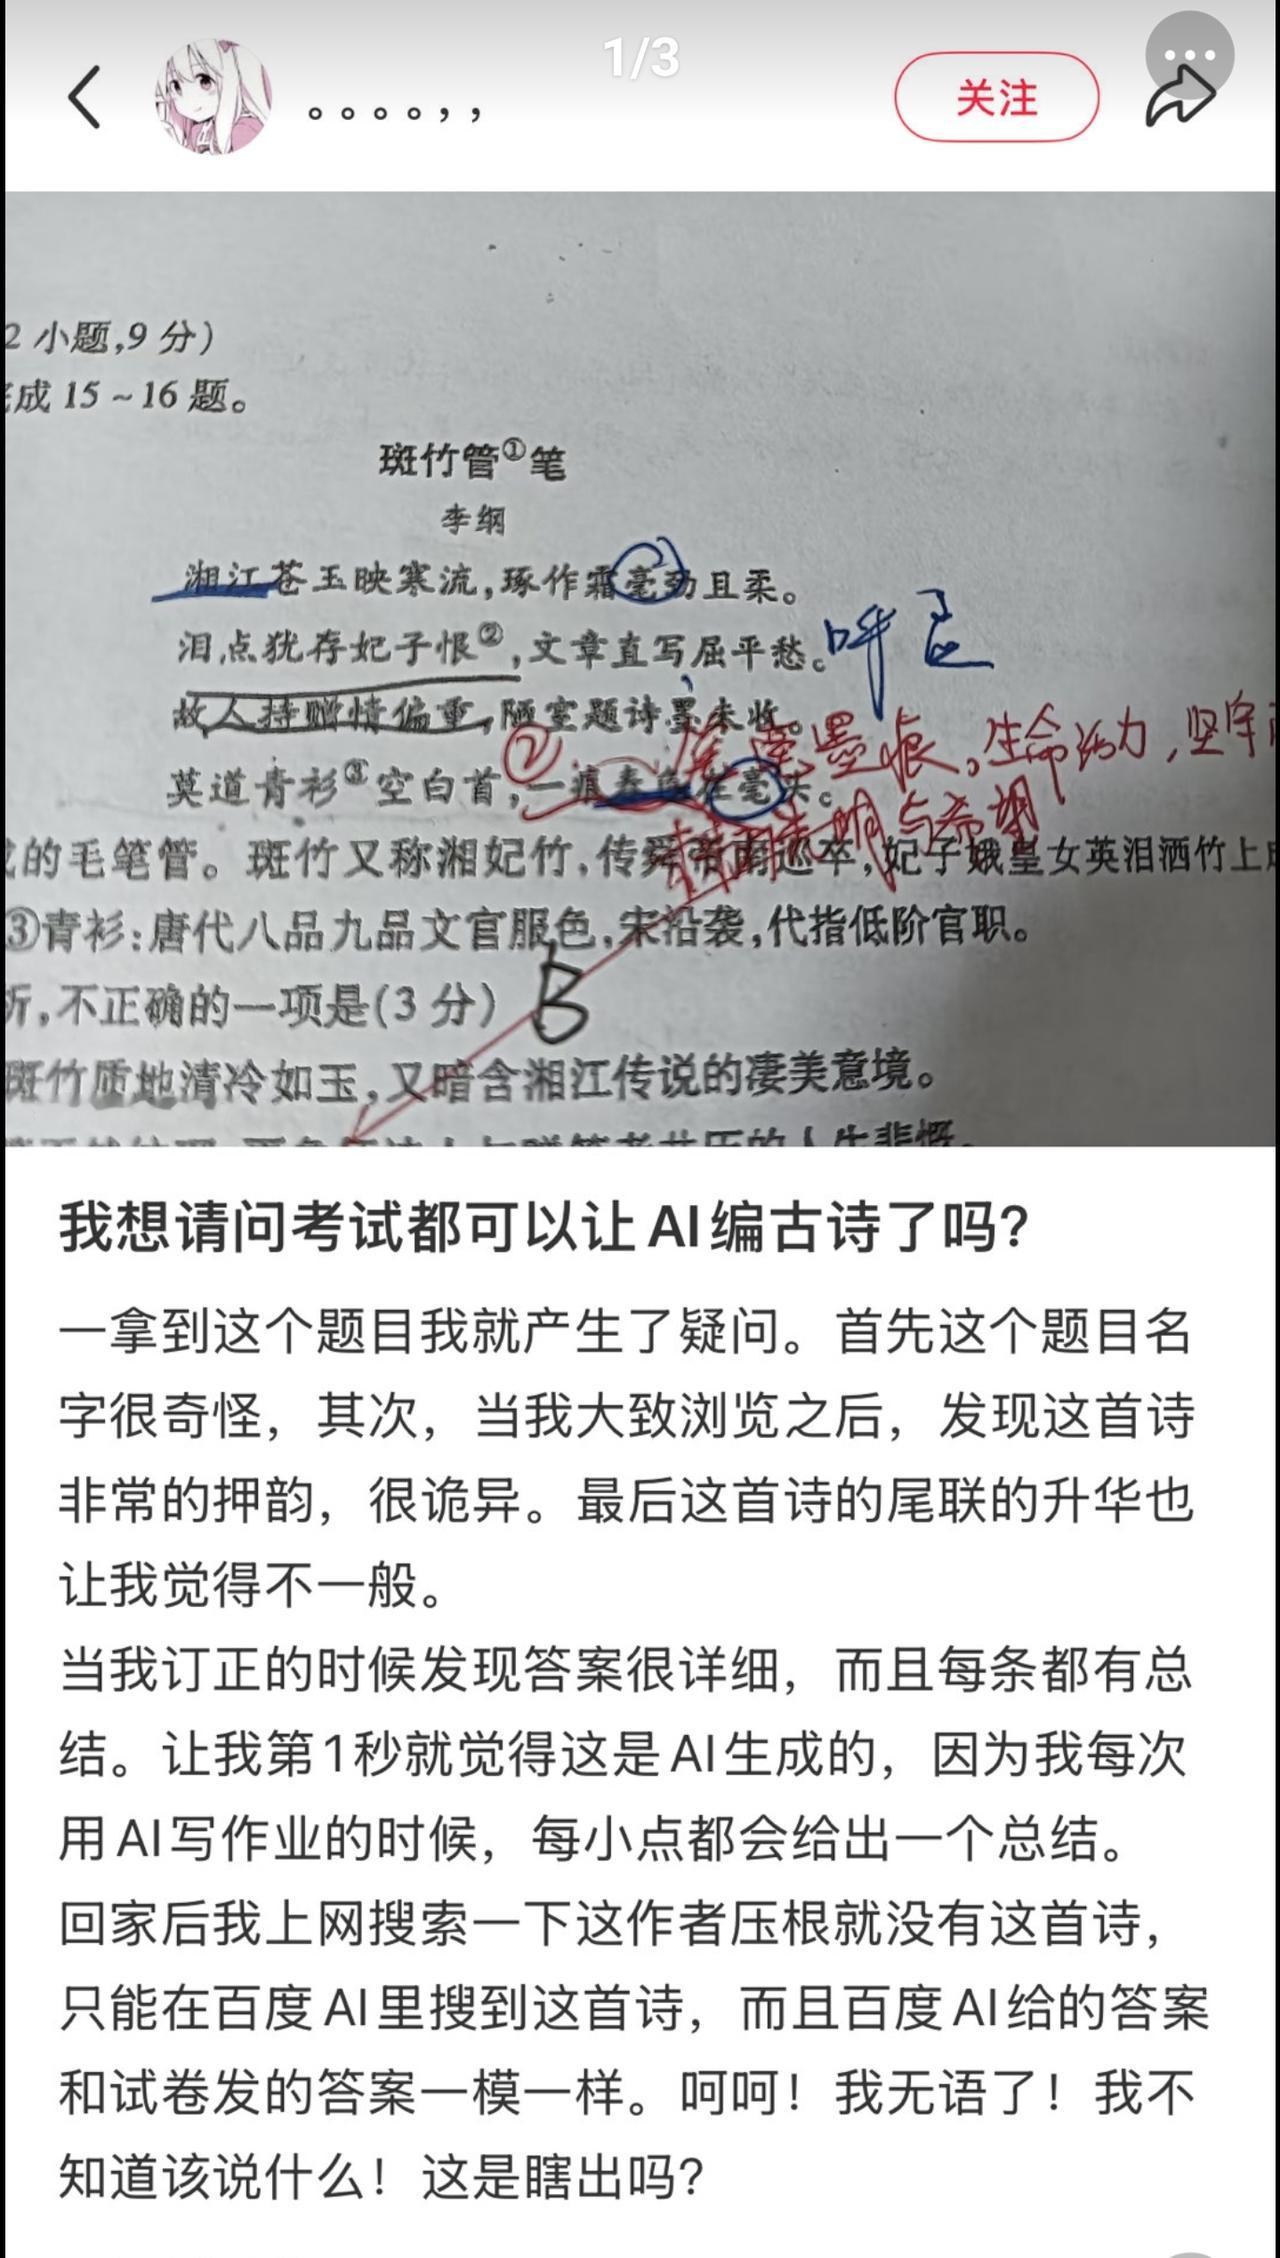 1/3
。。。。，，
关注
2 小题,9 分)
成 15 ~ 16 题。
斑竹管①笔
李纲
湘江苍玉映寒流,琢作霜毫劲且柔。
泪点犹存妃子恨②,文章直写屈平愁。
故人持赠情偏重,陋室题诗墨未收。
②
墨痕。生命活力,坚守
莫道青衫③空白首,一痕春色在毫头。
与希望
的毛笔管。斑竹又称湘妃竹,传舜帝南巡卒,妃子娥皇女英泪洒竹上
③青衫:唐代八品九品文官服色,宋沿袭,代指低阶官职。
析,不正确的一项是(3 分) B
斑竹质地清冷如玉,又暗含湘江传说的凄美意境。
我想请问考试都可以让AI编古诗了吗？
一拿到这个题目我就产生了疑问。首先这个题目名
字很奇怪，其次，当我大致浏览之后，发现这首诗
非常的押韵，很诡异。最后这首诗的尾联的升华也
让我觉得不一般。
当我订正的时候发现答案很详细，而且每条都有总
结。让我第1秒就觉得这是AI生成的，因为我每次
用AI写作业的时候，每小点都会给出一个总结。
回家后我上网搜索一下这作者压根就没有这首诗，
只能在百度AI里搜到这首诗，而且百度AI给的答案
和试卷发的答案一模一样。呵呵！我无语了！我不
知道该说什么！这是瞎出吗？